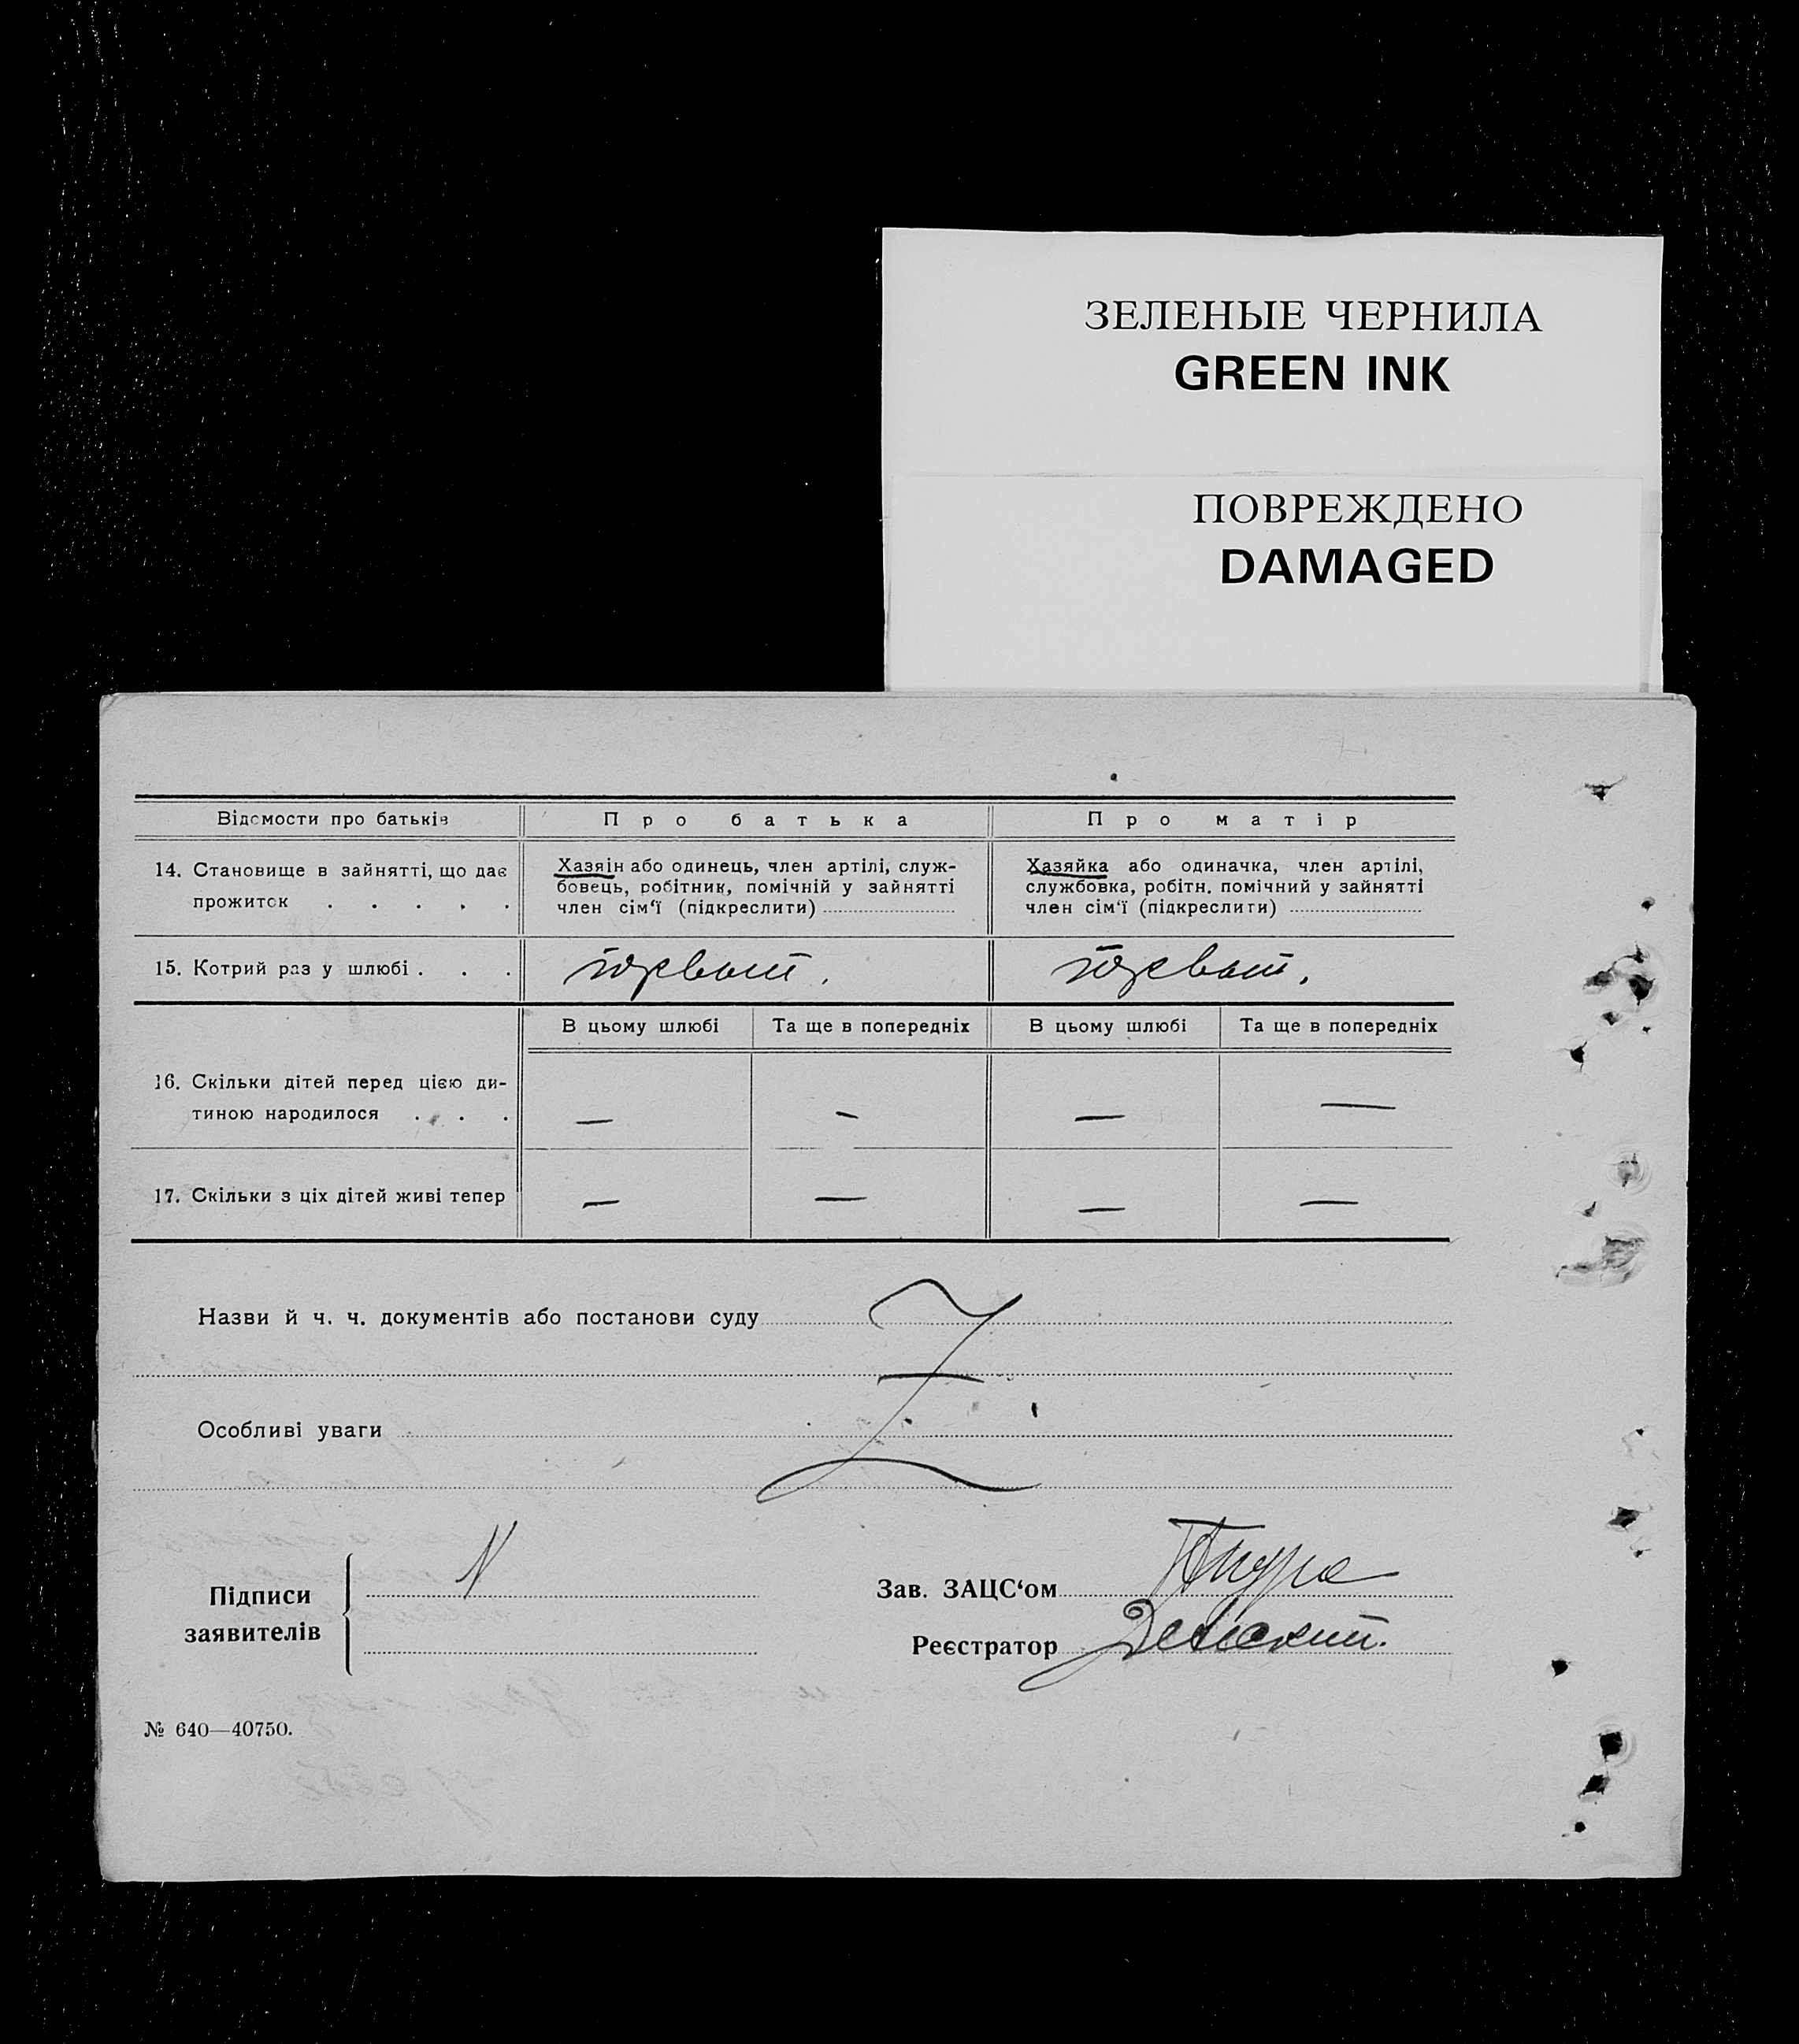 ЗЕЛЕНЫЕ ЧЕРНИЛА
GREEN INK
ПОВРЕЖДЕНО
DAMAGED
Відомости про батьків
Про батька
Про матір
14. Становище в зайнятті, що дає
прожиток . . . . .
Хазяїн або одинець, член артілі, служ-
бовець, робітник, помічній у зайнятті
член сім'ї (підкреслити)
Хазяйка або одиначка, член артілі,
службовка, робітн. помічний у зайнятті
член сім'ї (підкреслити)
15. Котрий раз у шлюбі . . .
первый.
первый.
В цьому шлюбі
Та ще в попередніх
В цьому шлюбі
Та ще в попередніх
16. Скільки дітей перед цією ди-
тиною народилося . . .
— — — —
17. Скільки з ціх дітей живі тепер
— — — —
Назви й ч. ч. документів або постанови суду
Z
Особливі уваги
Підписи
заявителів
Зав. ЗАЦС'ом
Реєстратор
№ 640—40750.